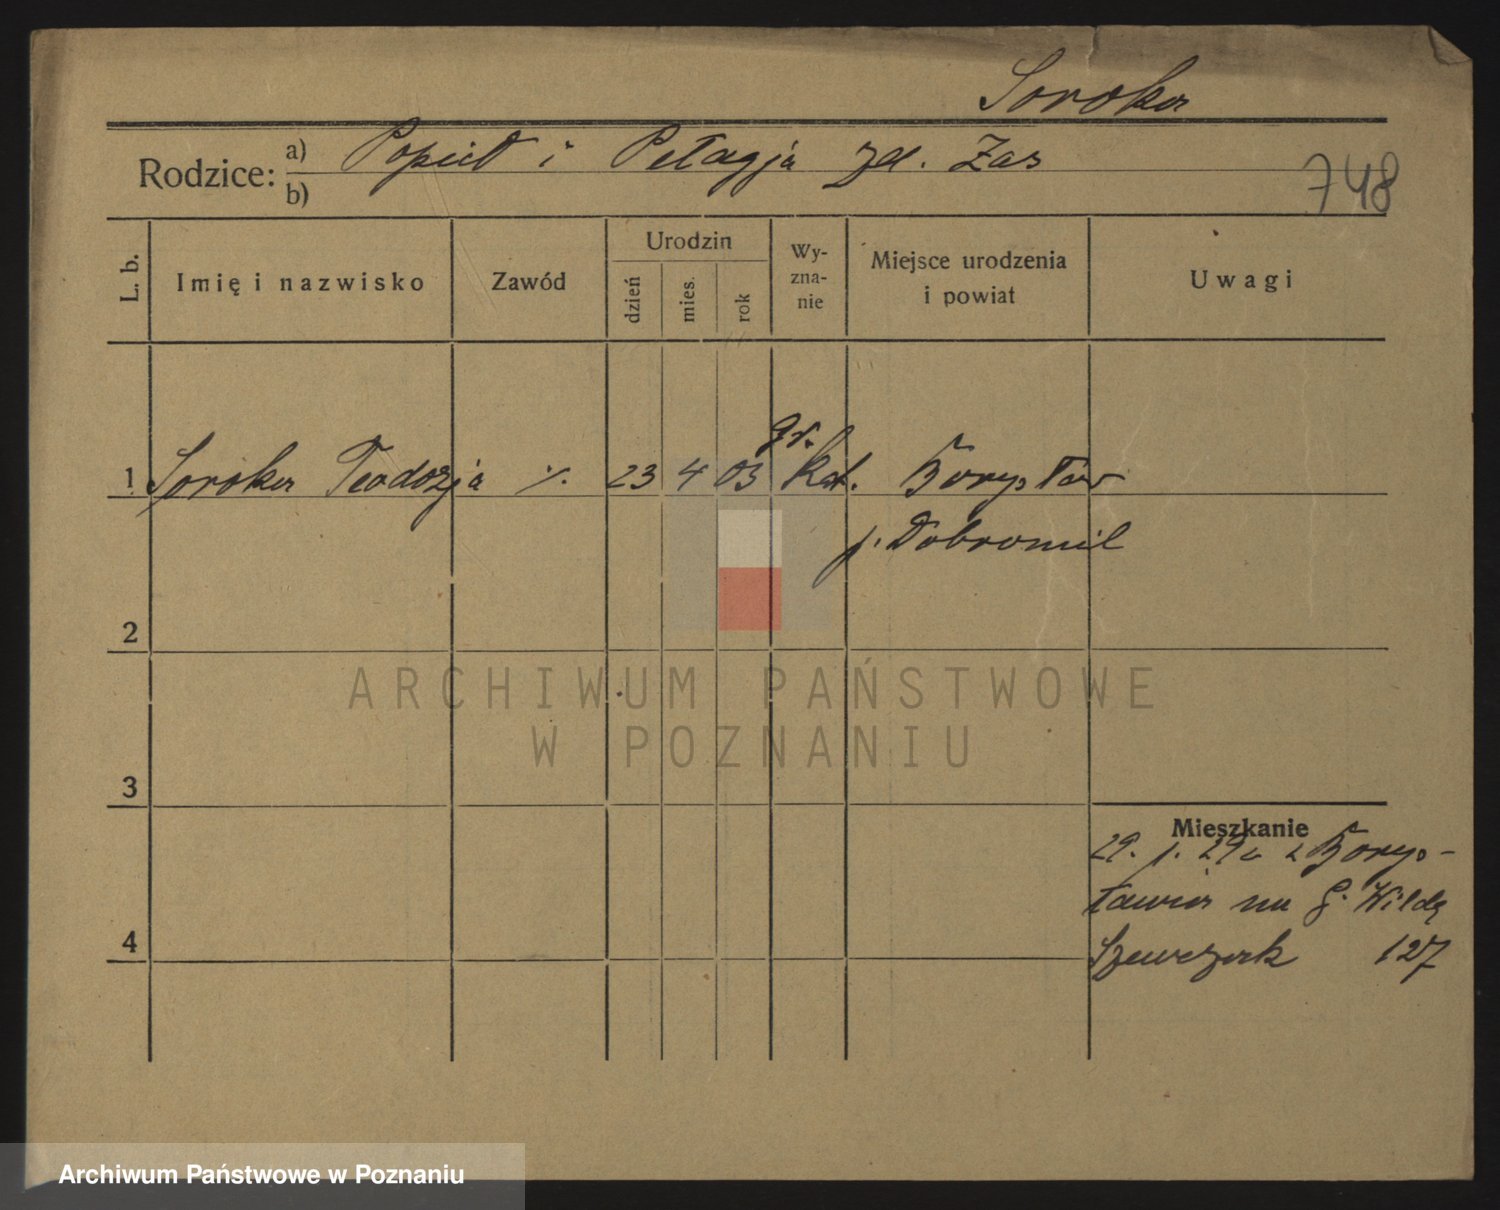 Soroka
Rodzice: a) Popiel i Pelagja zd. Zas
b)
748
L. b.
Imię i nazwisko
Zawód
Urodzin
dzień
mies.
rok
Wy-
zna-
nie
Miejsce urodzenia
i powiat
Uwagi
gr.
1 Soroka Teodozja 23 4 03 kat. Borysław
p. Dobromil
2
ARCHIWUM PAŃSTWOWE
W POZNANIU
3
Mieszkanie
29. z Borys-
ławia na G. Wildę
4
Szewczyk 127
Archiwum Państwowe w Poznaniu